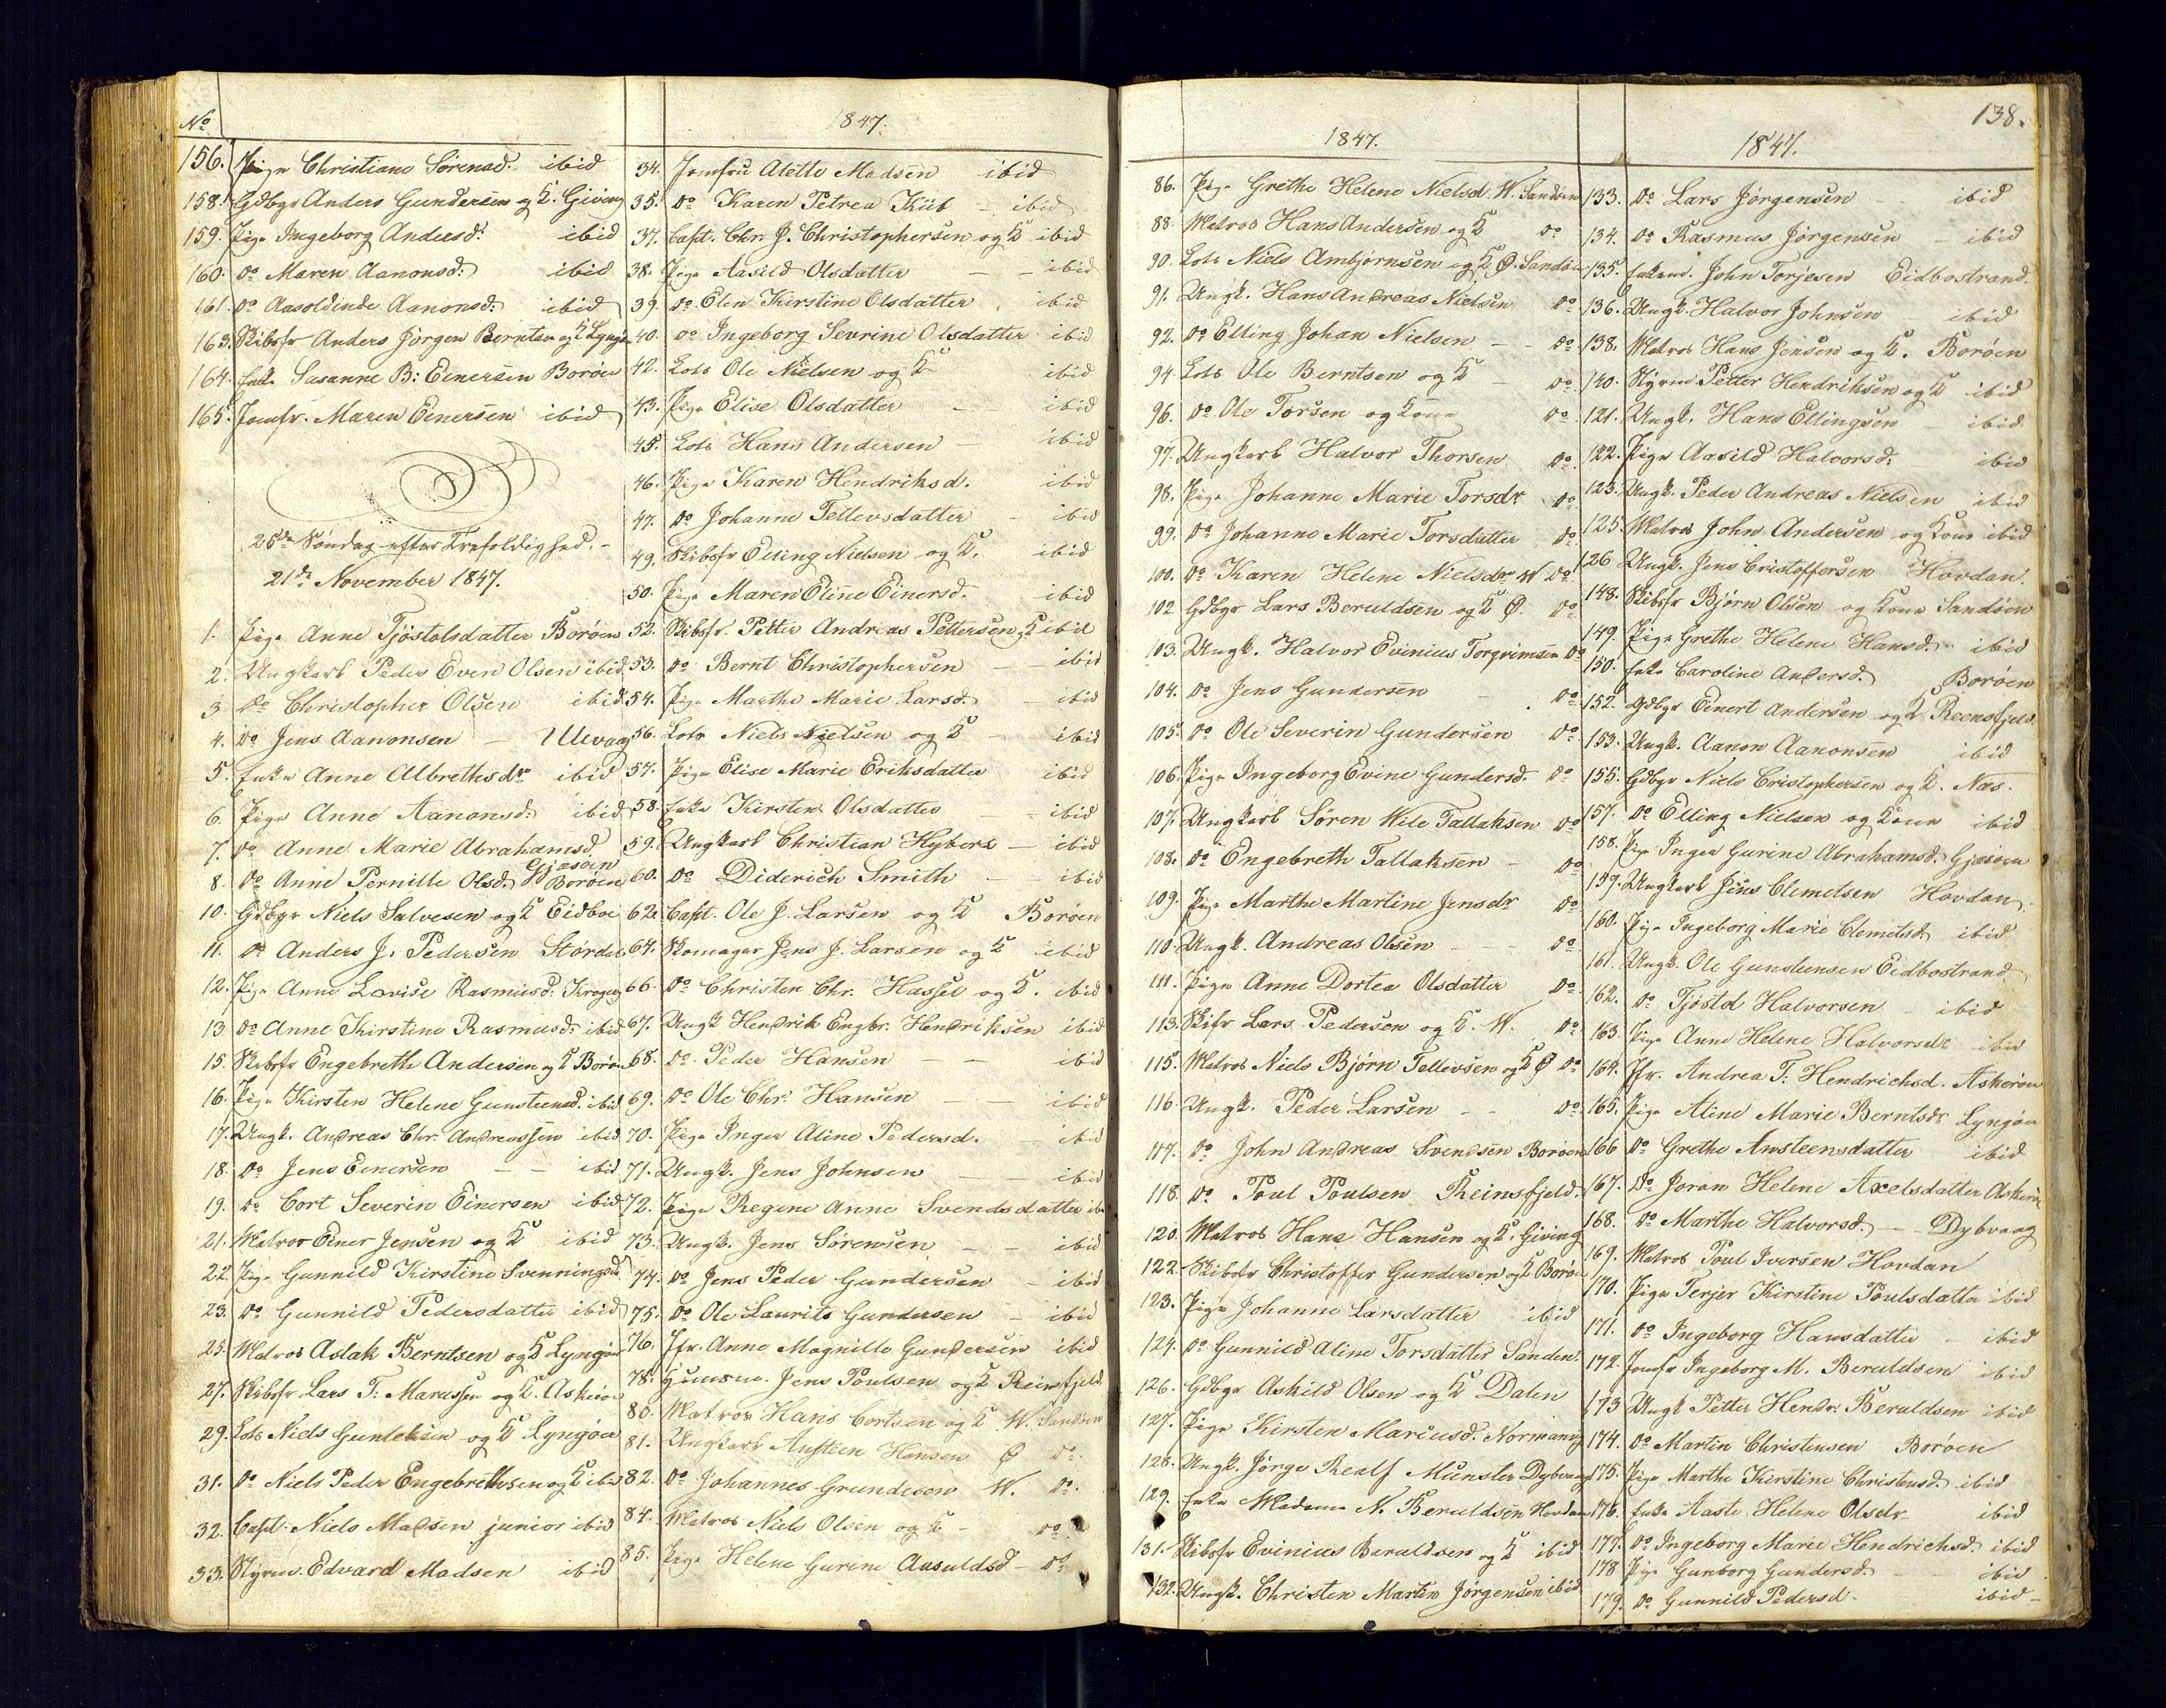 No
156. Pige Christiane Sørensd. ibid
158. Gdbgr Anders Gundersen og K. Giving
159. Pige Ingeborg Andersd. ibid
160. Do Maren Aanonsd. ibid
161. Do Aasoldinde Aanonsd. ibid
163. Skibsfr Anders Jörgen Berntsen og K Lyngøe
164. Enke Susanne B: Einersen Borøen
165. Jomfr. Maren Einersen ibid
25de Søndag efter Trefoldighed.
21de November 1847.
1. Pige Anne Tjöstolsdatter Borøen
2. Ungkarl Peder Even Olsen ibid
3 Do Christopher Olsen ibid
4. Do Jens Aanonsen – Ulevaag
5. Enke Anne Albrethsdr ibid
6. Pige Anne Aanonsd: ibid
7. Do Anne Marie Abrahamsd Gjæsøen
8. Do Anne Pernille Olsd. Borøen
10. Gdbgr Niels Salvesen og K Eidboe
11. Do Anders J. Pedersen Stördal
12. Pige Anne Lovise Rasmusd: Krogvig
13 Do Anne Kirstine Rasmusd: ibid
15. Skibsfr Engebreth Andersen og K Borøen
16. Pige Kirsten Helene Gunsteensd. ibid
17. Ungk. Andreas Chr. Andreassen ibid
18. Do Jens Einersen – – ibid
19. Do Cort Severin Einersen ibid
21. Matros Einer Jensen og K ibid
22. Pige Gunnild Kirstine Svenningsd
23. Do Gunnild Pedersdatter ibid
25. Matros Aslak Berntsen og K Lyngøe
27. Skibsfr Lars T: Marcussen og K. Askerøe
29. Lods Niels Gunleksen og K Lyngøen
31. Do Niels Peder Engebrethsen og K ibid
32. Capt. Niels Madsen junior ibid
33. Styrm. Edvard Madsen ibid
1847.
34. Jomfru Alette Madsen ibid
35. Do Karen Petrea Küb – ibid
37. Capt. Chr. J. Christophersen og K ibid
38. Pige Aasild Olsdatter – – ibid
39. Do Elen Kirstine Olsdatter ibid
40. Do Ingeborg Sevrine Olsdatter ibid
42. Lods Ole Nielsen og K ibid
43. Pige Elise Olsdatter – ibid
45. Lods Hans Andersen – ibid
46. Pige Karen Hendriksd. ibid
47. Do Johanne Tellevsdatter – ibid
49. Skibsfr Elling Nielsen og K. ibid
50. Pige Maren Eline Einersd. ibid
52. Skibsfr. Petter Andreas Pettersen og K ibid
53. Do Bernt Christophersen – ibid
54. Pige Marthe Marie Larsd. – ibid
56. Lods Niels Nielsen og K – ibid
57. Pige Elise Marie Eriksdatter ibid
58. Enke Kirsten Olsdatter – ibid
59. Ungkarl Christian Hybers – ibid
60. Do Diderich Smith – ibid
62. Capt. Ole J. Larsen og K Borøen
64. Skomager Jens J. Larsen og K ibid
66. Do Christen Chr. Hassel og K. ibid
67. Ungk Hendrik Engbr. Hendriksen ibid
68. Do Peder Hansen – – ibid
69. Do Ole Chr. Hansen – – ibid
70. Pige Inger Aline Pedersd. – ibid
71. Ungk. Jens Johnsen – – ibid
72. Pige Regine Anne Svendsdatter ib
73. Ungk. Jens Sörensen – – ibid
74. Do Jens Peder Gundersen – ibid
75. Do Ole Laurits Gundersen – ibid
76. Jfr. Anne Magnille Gundersen ibid
78. Huusm. Jens Poulsen og K Reinsfjeld
80. Matros Hans Cortsen og K W. Sandøen
81. Ungkarl Austeen Hansen Ø Do.
82. Do Johannes Grundesen W. Do.
84. Matros Niels Olsen og K – Do
85. Pige Helene Gurine Aasuldsd – Do
1847.
86. Pige Grethe Helene Nielsd. W. Sandøen
88. Matros Hans Andersen og K Do
90. Lods Niels Ambjørnsen og K Ø. Sandøe
91. Ungk. Hans Andreas Nielsen Do
92. Do Elling Johan Nielsen – – Do
94. Lods Ole Berntsen og K – Do
96. Do Ole Torsen og Kone Do
97. Ungkarl Halvor Thorsen Do.
98. Pige Johanne Marie Torsdr Do
99. Do Johanne Marie Torsdatter Do
100. Do Karen Helene Nielsdr W Do
102 Gdbgr Lars Beruldsen og K Ø. Do
103. Ungk. Halvor Evinius Torgrimsen Do
104. Do Jens Gundersen – Do
105. Do Ole Severin Gundersen Do
106. Pige Ingeborg Evine Gundersd. Do
107. Ungkarl Sören Wile Tallaksen Do
108. Do Engebreth Tallaksen – Do
109. Pige Marthe Martine Jensdr Do
110. Ungk. Andreas Olsen – – Do
111. Pige Anne Dortea Olsdatter Do
113. Skifr Lars Pedersen og K. W. Do
115. Matros Niels Bjørn Tellevsen og K Ø Do
116 Ungk. Peder Larsen – – Do
117. Do John Andreas Svendsen Borøen
118. Do Poul Poulsen Reinsfjeld.
120. Matros Hans Hansen og K. Giving
122. Skibsfr Christoffer Gundersen og K Borøe
123. Pige Johanne Larsdatter ibid
124. Do Gunnild Aline Torsdatter Sanden.
126. Gdbgr Askild Olsen og K Dalen
127. Pige Kirsten Marcusd. Normanvig
128. Ungk. Jörge Realf Münster Dybvaag
129. Enke Madame N. Beruldsen Hovdan
131. Skibsfr Evinius Beruldsen og K ibid
132. Ungk. Christen Martin Jörgensen ibid
138.
1847.
133. Do Lars Jörgensen – – ibid
134. Do Rasmus Jörgensen – ibid
135. Enkem. John Torjesen Eidbostrand
136. Ungk. Halvor Johnsen ibid
138. Matros Hans Jensen og K. Borøen
140. Styrm. Petter Hendriksen og K ibid
121. Ungk. Hans Ellingsen – ibid
122. Pige Aasild Halvorsd. ibid
123. Ungk. Peder Andreas Nielsen ibid
125. Matros John Andersen og Kone ibid
126 Ungk. Jens Cristoffersen Hovdan.
148. Skibsfr Bjørn Olsen og Kone Sandøen
149. Pige Grethe Helene Hansd. ibid
150. Enke Caroline Andersd. Borøen
152. Gdbgr Einert Andersen og K Reensfjeld.
153. Ungk. Aanon Aanonsen ibid
155. Gdbgr Niels Cristophersen og K. Næs.
157. Do Elling Nielsen og Kone ibid
158. Pige Inger Gurine Abrahamsd. Gjæsøen
159. Ungkarl Jens Clemetsen Hovdan
160. Pige Ingeborg Marie Clemetsd. ibid
161. Ungk. Ole Gunsteensen Eidbostrand
162. Do Tjöstol Halvorsen – ibid
163. Pige Anne Helene Halvorsdr ibid
164. Jfr. Andrea T: Hendrichsd. Askerøen
165. Pige Aline Marie Berntsdr Lyngøen
166 Do Grethe Ansteensdatter ibid
167. Do Joran Helene Axelsdatter Askerøe
168. Do Marthe Halvorsd. – Dybvaag
169. Matros Poul Iversen Hovdan
170. Pige Terjer Kirstine Poulsdatter ibid
171. Do Ingeborg Hansdatter – ibid
172. Jomfr Ingeborg M. Beruldsen ibid
173 Ungk Petter Hendr. Beruldsen ibid
174. Do Martin Christensen Borøen
175. Pige Marthe Kirstine Christensd. ibid
176. Enke Aaste Helene Olsdr ibid
177. Do Ingeborg Marie Hendrichsd. ibid
178 Pige Gunborg Gundersd. – ibid
179. Do Gunnild Pedersd. ibid –